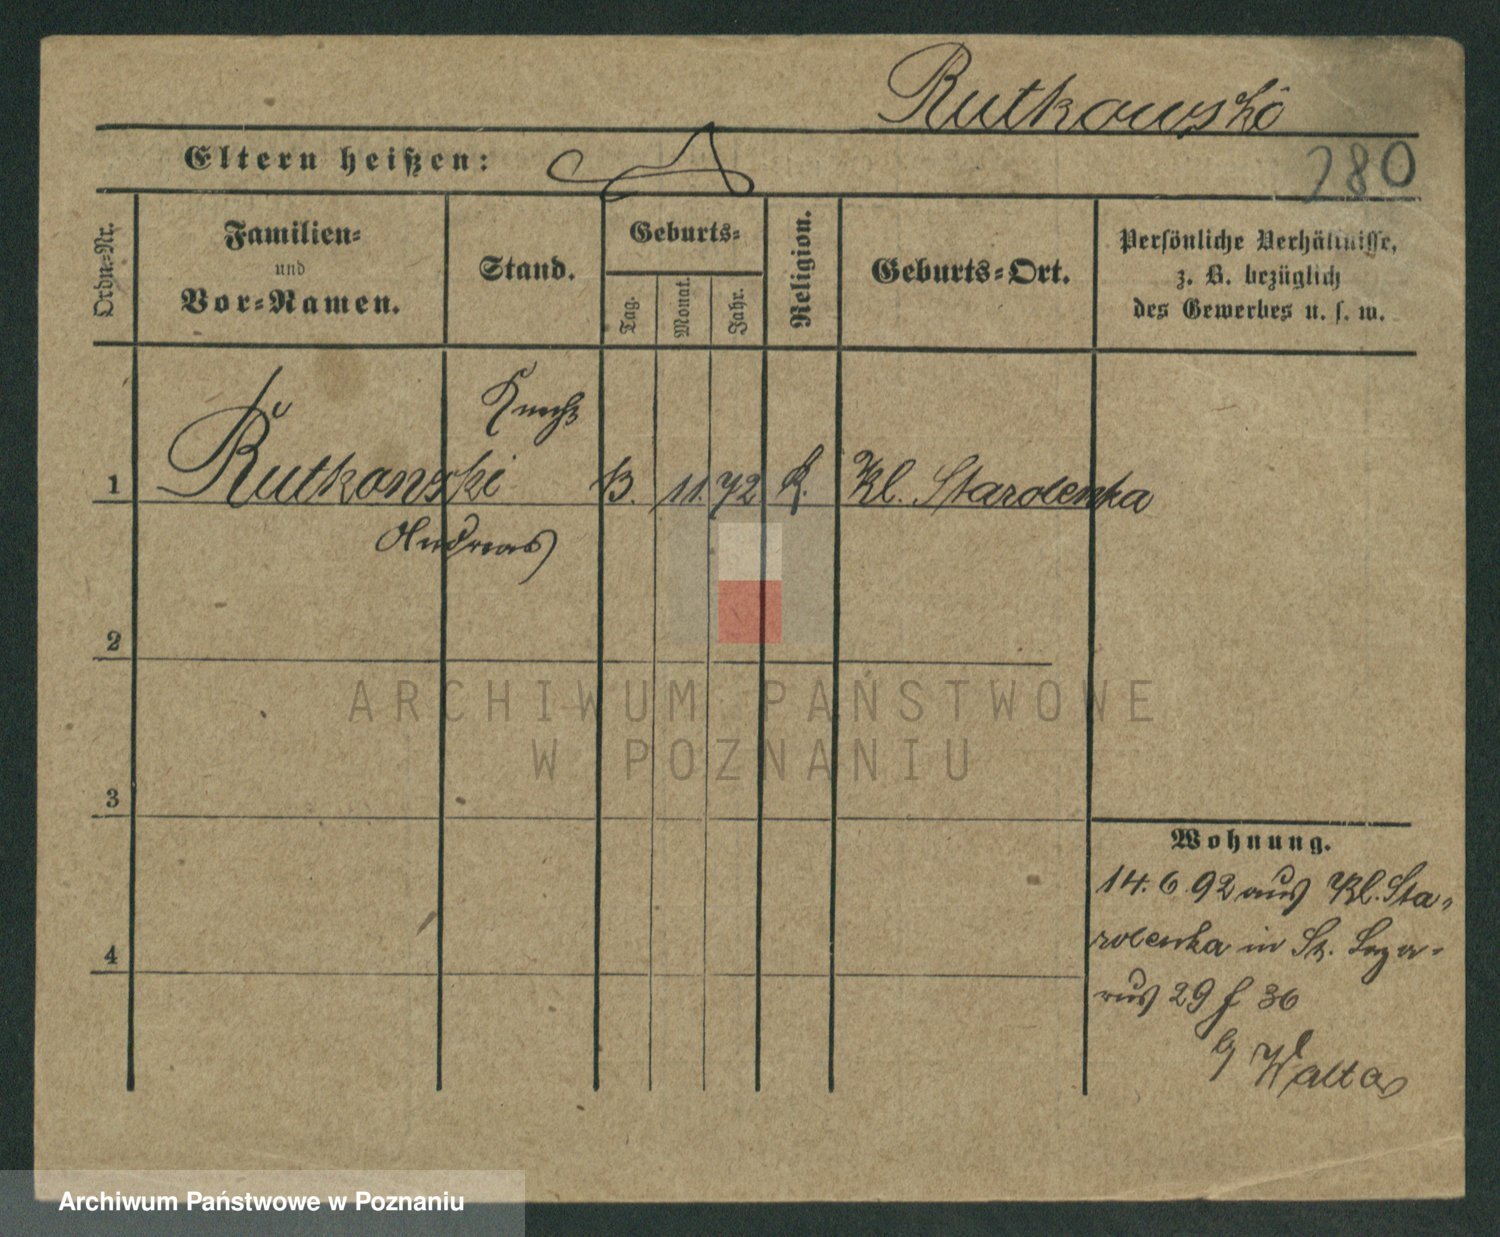 Rutkowski
280
Eltern heißen:
Ordn=Nr.
Familien=
und
Vor=Namen.
Stand.
Geburts=
Tag.
Monat.
Jahr.
Religion.
Geburts=Ort.
Persönliche Verhältnisse,
z. B. bezüglich
des Gewerbes u. s. w.
Knecht
1 Rutkowski 11. 72 K. Kl. Starolenka
Andreas
2
ARCHIWUM PAŃSTWOWE
W POZNANIU
3
Wohnung.
14. 6 92 aus Kl. Sta-
rolenka in St. Laza-
rus 29 f 36
4
Archiwum Państwowe w Poznaniu